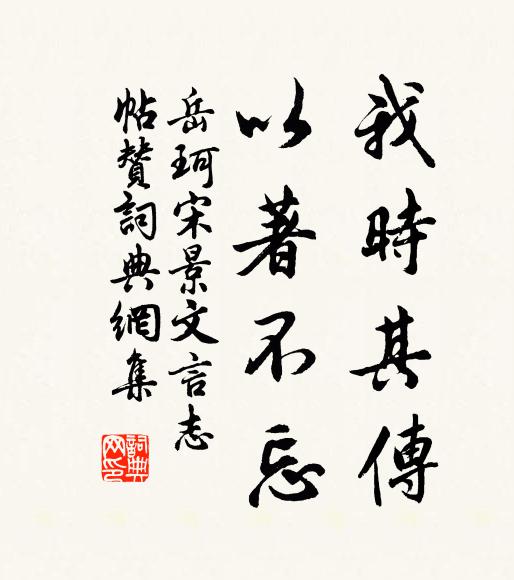 我時其傳
以著不忘
岳珂宋景文言志
帖贊詞典網集
詞典
网印